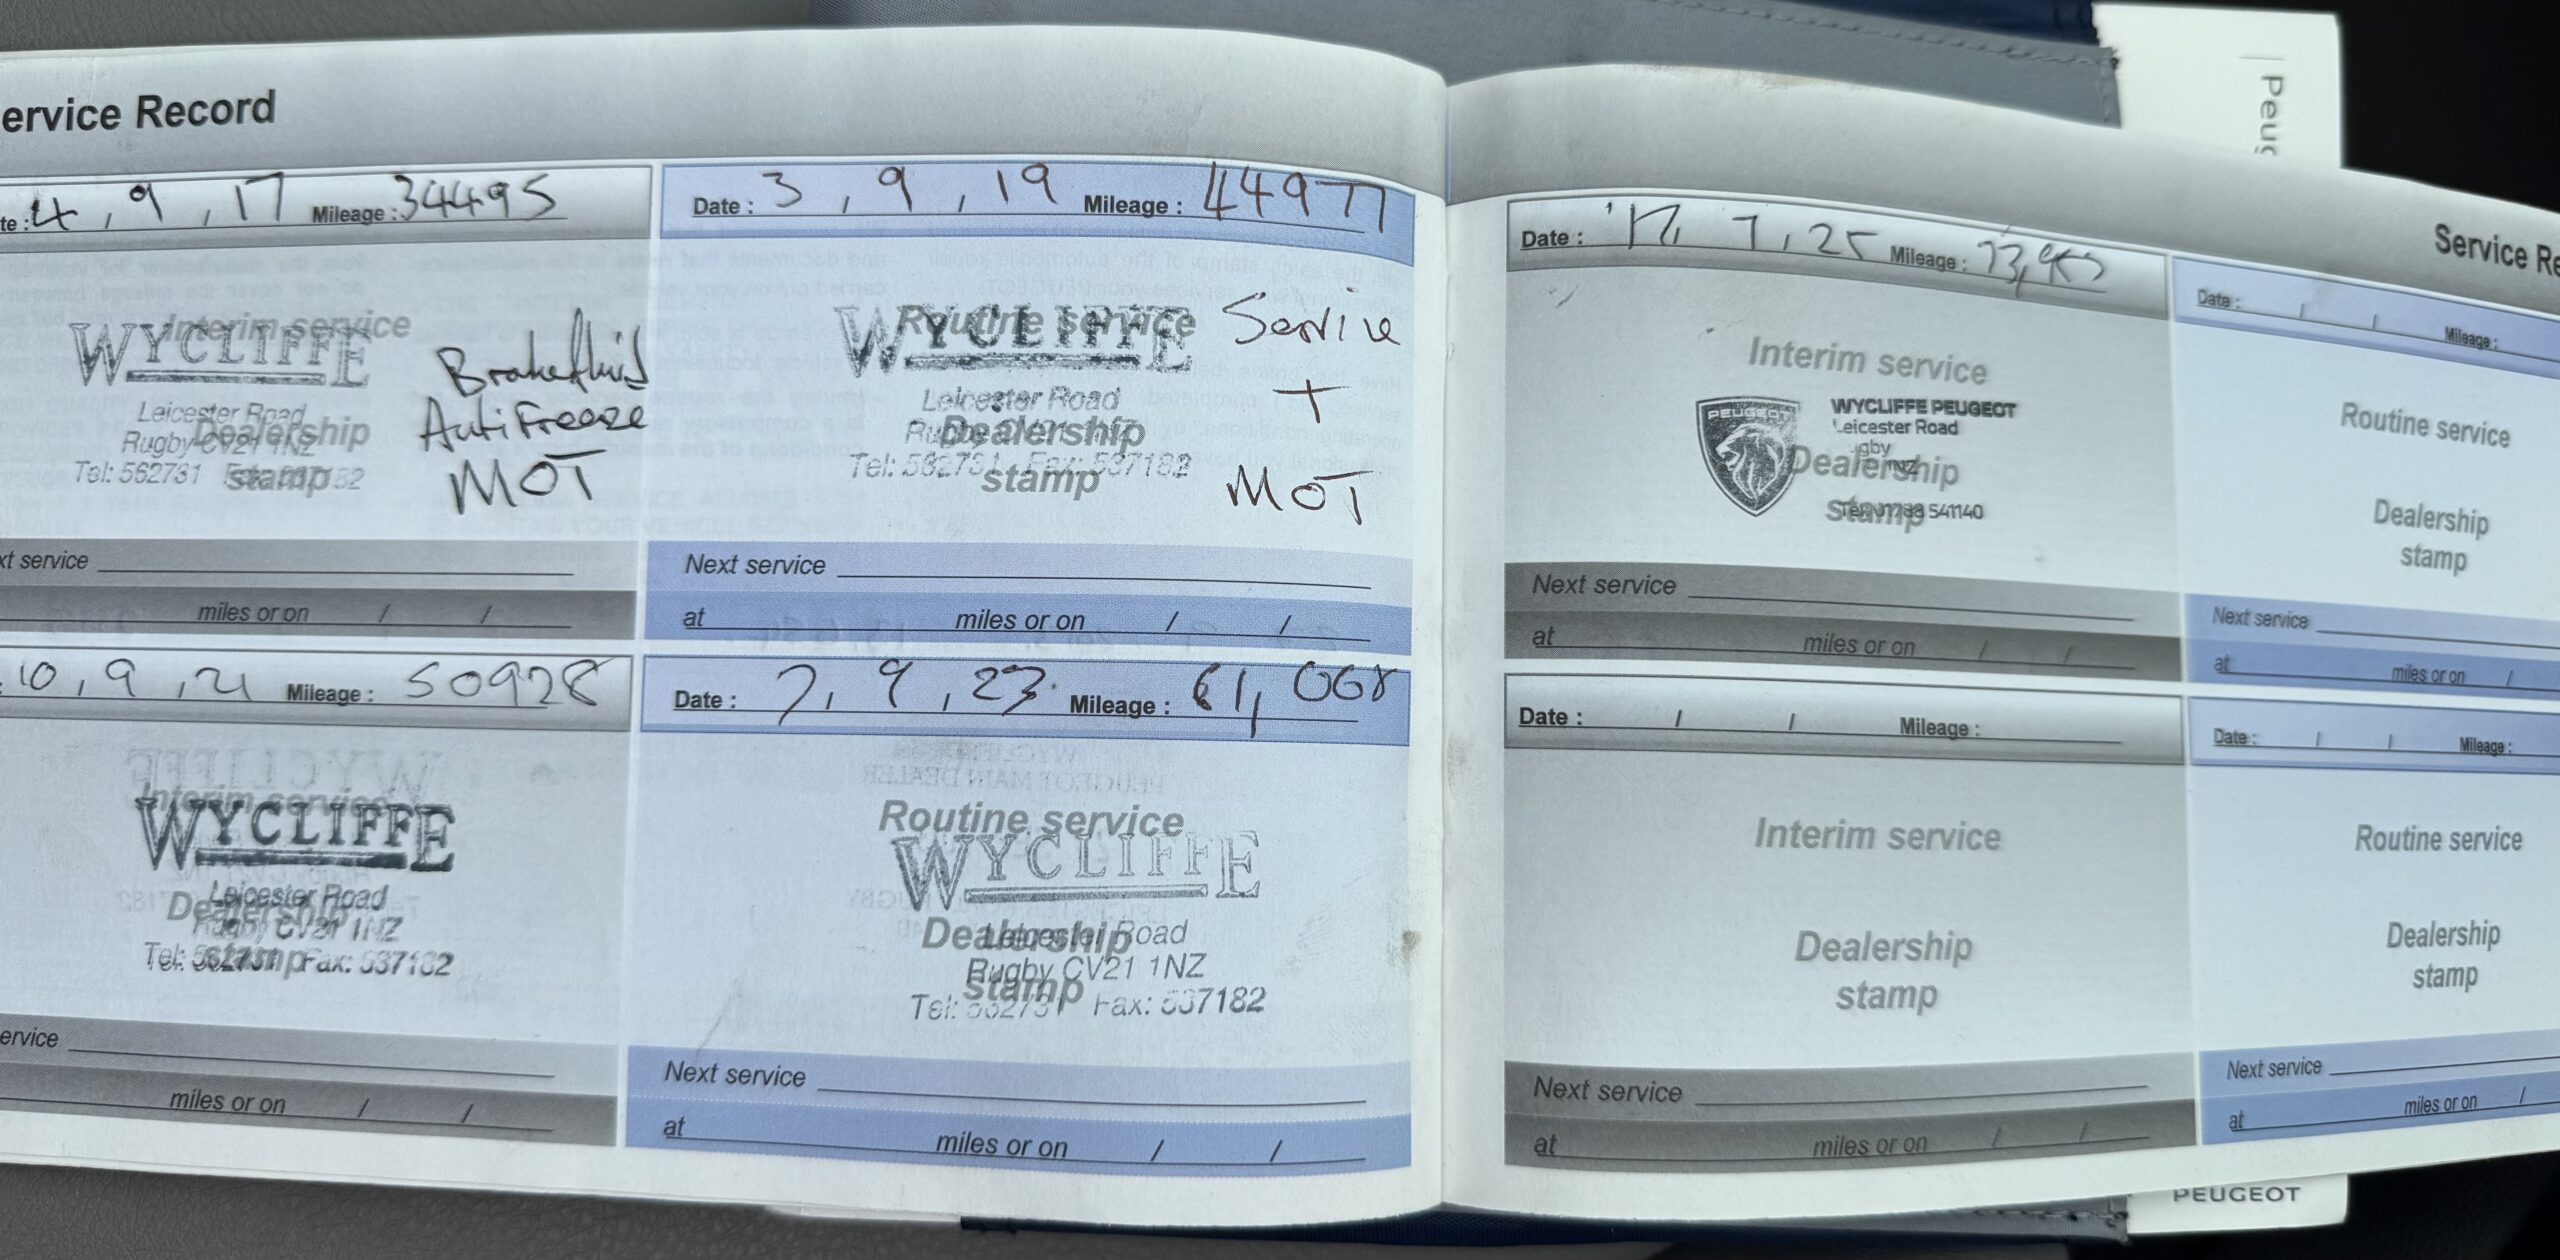 ervice Record
te : 4 , 9 , 17 Mileage : 34495
Interim service
WYCLIFFE
Leicester Road
Rugby CV21 1NZ
Dealership
stamp
Tel: 562731
Brakefluid
AntiFreeze
MOT
xt service
miles or on / /
Date : 3 , 9 , 19 Mileage : 44977
Routine service
WYCLIFFE
Leicester Road
Dealership
stamp
Fax: 537182
Service
+
MOT
Next service
at miles or on / /
: 10 , 9 , 21 Mileage : 50928
Interim service
WYCLIFFE
Leicester Road
Dealership
Rugby CV21 1NZ
stamp
Tel: 562731 Fax: 537182
ervice
miles or on / /
Date : 7 , 9 , 23 Mileage : 61,068
Routine service
WYCLIFFE
Leicester Road
Dealership
Rugby CV21 1NZ
stamp
Tel: 562731 Fax: 537182
Next service
at miles or on / /
Service Re
Date : 17, 7 , 25 Mileage :
Interim service
PEUGEOT
WYCLIFFE PEUGEOT
Leicester Road
Dealership
stamp
541140
Next service
at miles or on / /
Date : / / Mileage :
Routine service
Dealership
stamp
Next service
at miles or on /
Date : / / Mileage :
Interim service
Dealership
stamp
Next service
at miles or on / /
Date : / / Mileage :
Routine service
Dealership
stamp
Next service
at miles or on /
Peug
PEUGEOT